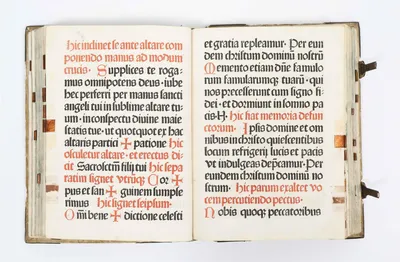 hic inclinet se ante altare com
ponendo manus ad modum
crucis. Supplices te roga-
mus omnipotens deus: iube
hec perferri per manus sancti
angeli tui in sublime altare tu-
um: in conspectu divine maie
statis tue: ut quotquot ex hac
altaris partici ✠ patione hic
osculetur altare: et erectus di-
cit Sacrosctm̄ filij tui hic sepa
ratim signet vtrūq; Cor ✠
pus et san ✠ guinem sumpse
rimus hic signet seipsum.
Om̄i bene ✠ dictione celesti
et gratia repleamur. Per eun
dem christum dominū nostrū
Memento etiam dn̄e famulo
rum famularumq; tuarū: qui
nos precesserunt cum signo fi-
dei: et dormiunt in somno pa
cis. N. hic fiat memoria defun
ctorum. Ipsis domine et om
nibus in christo quiescentibus
locum refrigerij lucis et pacis
vt indulgeas dep̄camur. Per
eundem christum dominū no
strum. hic parum exaltet vo
cem percutiendo pectus:
Nobis quoq; peccatoribus